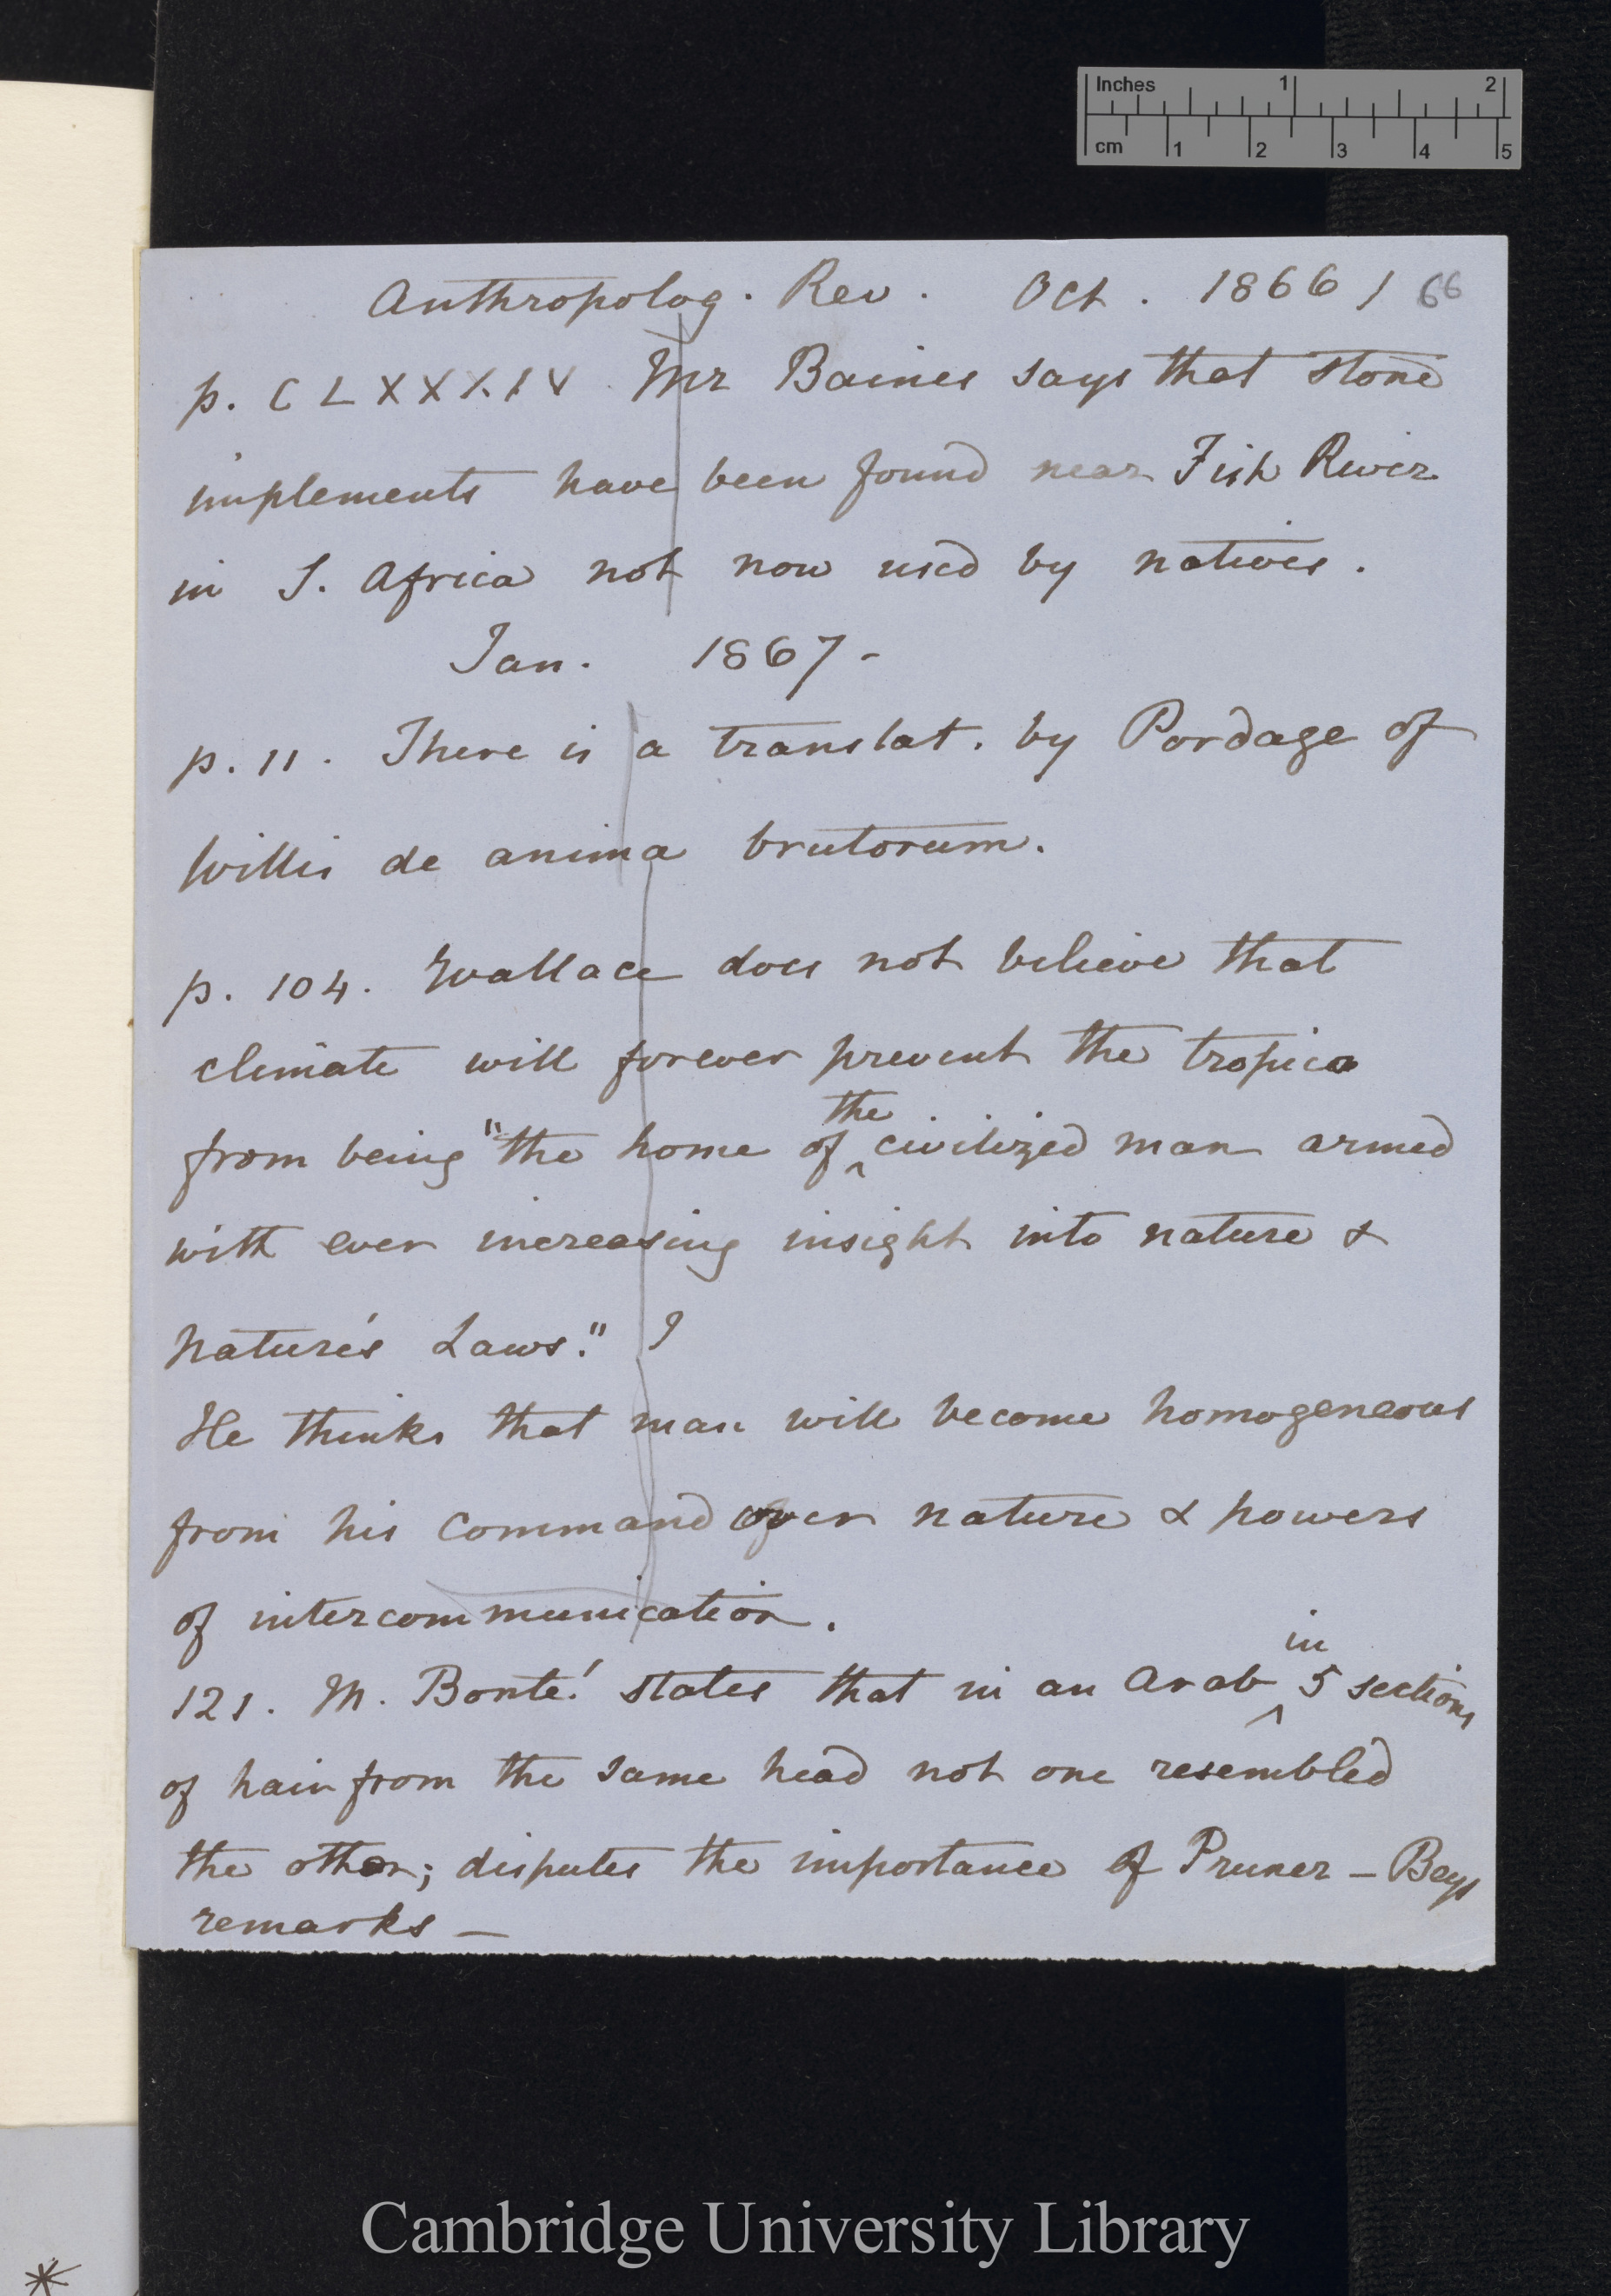 Inches 1 2
cm 1 2 3 4 5
Anthropolog. Rev. Oct. 1866 / 66
p. CLXXXIV Mr Baines says that stone
implements have been found near Fish River
in S. Africa not now used by natives.
Jan. 1867 -
p. 11. There is a translat. by Pordage of
Willis de anima brutorum.
p. 104. Wallace does not believe that
climate will forever prevent the tropics
the
from being "the home of ^ civilized man armed
with ever increasing insight into nature &
Nature's Laws." ?
He thinks that man will become homogeneous
from his command over nature & powers
of intercommunication.
in
121. M. Bonté! states that in an Arab ^ 5 sections
of hair from the same head not one resembled
the other; disputes the importance of Pruner-Beys
remarks —
Cambridge University Library